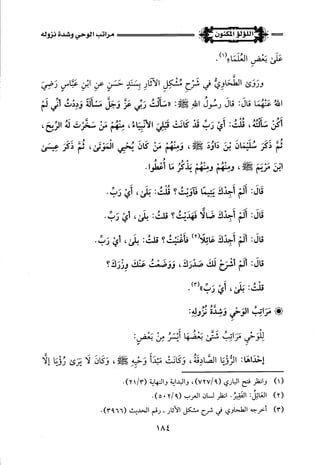 اللؤلؤ المكنون
مراتب الوحي وشدة نزوله
عَلَى بَعْضِ العُلَمَاءِ(١).
وَرَوَى الطَّحَاوِيُّ فِي شَرْحِ مُشْكِلِ الآثَارِ بِسَنَدٍ حَسَنٍ عَنِ ابْنِ عَبَّاسٍ رَضِيَ
اللهُ عَنْهُمَا قَالَ: قَالَ رَسُولُ اللهِ ﷺ: «سَأَلْتُ رَبِّي عَزَّ وَجَلَّ مَسْأَلَةً وَدِدْتُ أَنِّي لَمْ
أَكُنْ سَأَلْتُهُ، قُلْتُ: أَيْ رَبِّ قَدْ كَانَتْ قَبْلِيَ الأَنْبِيَاءُ، مِنْهُمْ مَنْ سَخَّرْتَ لَهُ الرِّيحَ،
ثُمَّ ذَكَرَ سُلَيْمَانَ بْنَ دَاوُدَ ﷺ، وَمِنْهُمْ مَنْ كَانَ يُحْيِي المَوْتَى، ثُمَّ ذَكَرَ عِيسَى
ابْنَ مَرْيَمَ ﷺ، وَمِنْهُمْ وَمِنْهُمْ يَذْكُرُ مَا أُعْطُوا.
قَالَ: أَلَمْ أَجِدْكَ يَتِيمًا فَآوَيْتُ؟ قُلْتُ: بَلَى، أَيْ رَبِّ.
قَالَ: أَلَمْ أَجِدْكَ ضَالًّا فَهَدَيْتُ؟ قلتُ: بَلَى، أَيْ رَبِّ.
قَالَ: أَلَمْ أَجِدْكَ عَائِلًا(٢) فَأَغْنَيْتُ؟ قلتُ: بَلَى، أَيْ رَبِّ.
قَالَ: أَلَمْ أَشْرَحْ لَكَ صَدْرَكَ، وَوَضَعْتُ عَنْكَ وِزْرَكَ؟
قلْتُ: بَلَى، أَيْ رَبِّ»(٣).
◉ مَرَاتِبُ الوَحْيِ وَشِدَّةُ نُزُولِهِ:
لِلْوَحْيِ مَرَاتِبُ شَتَّى بَعْضُهَا أَيْسَرُ مِنْ بَعْضٍ:
إِحْدَاهَا: الرُّؤْيَا الصَّادِقَةُ، وَكَانَتْ مَبْدَأَ وَحْيِهِ ﷺ، وَكَانَ لَا يَرَى رُؤْيَا إِلَّا
(١) وانظر فتح الباري (٧٢٧/٩)، والبداية والنهاية (٢١/٣).
(٢) العَائِلُ: الفَقِيرُ. انظر لسان العرب (٥٠٢/٩).
(٣) أخرجه الطحاوي في شرح مشكل الآثار ـ رقم الحديث (٣٩٦٦).
١٨٤